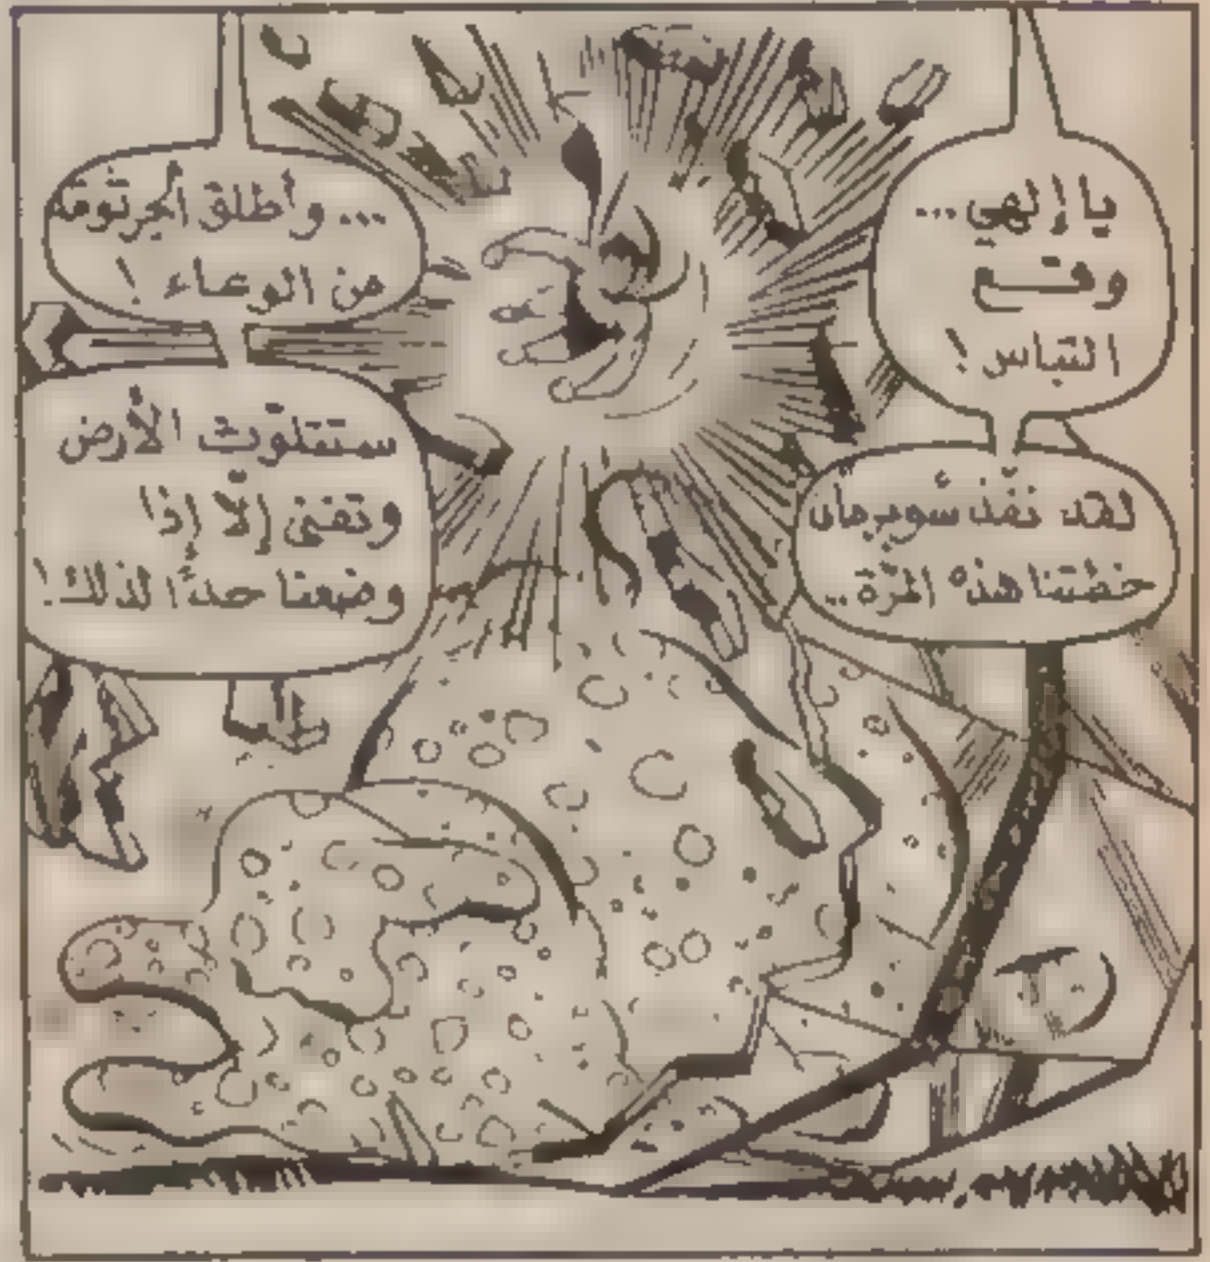 يا إلهي...
وقع
التباس!
لقد نفّذ سوبرمان
خطّتنا هذه المرّة..
... وأطلق الجرثومة
من الوعاء!
ستتلوّث الأرض
وتفنى إلّا إذا
وضعنا حدًّا لذلك!